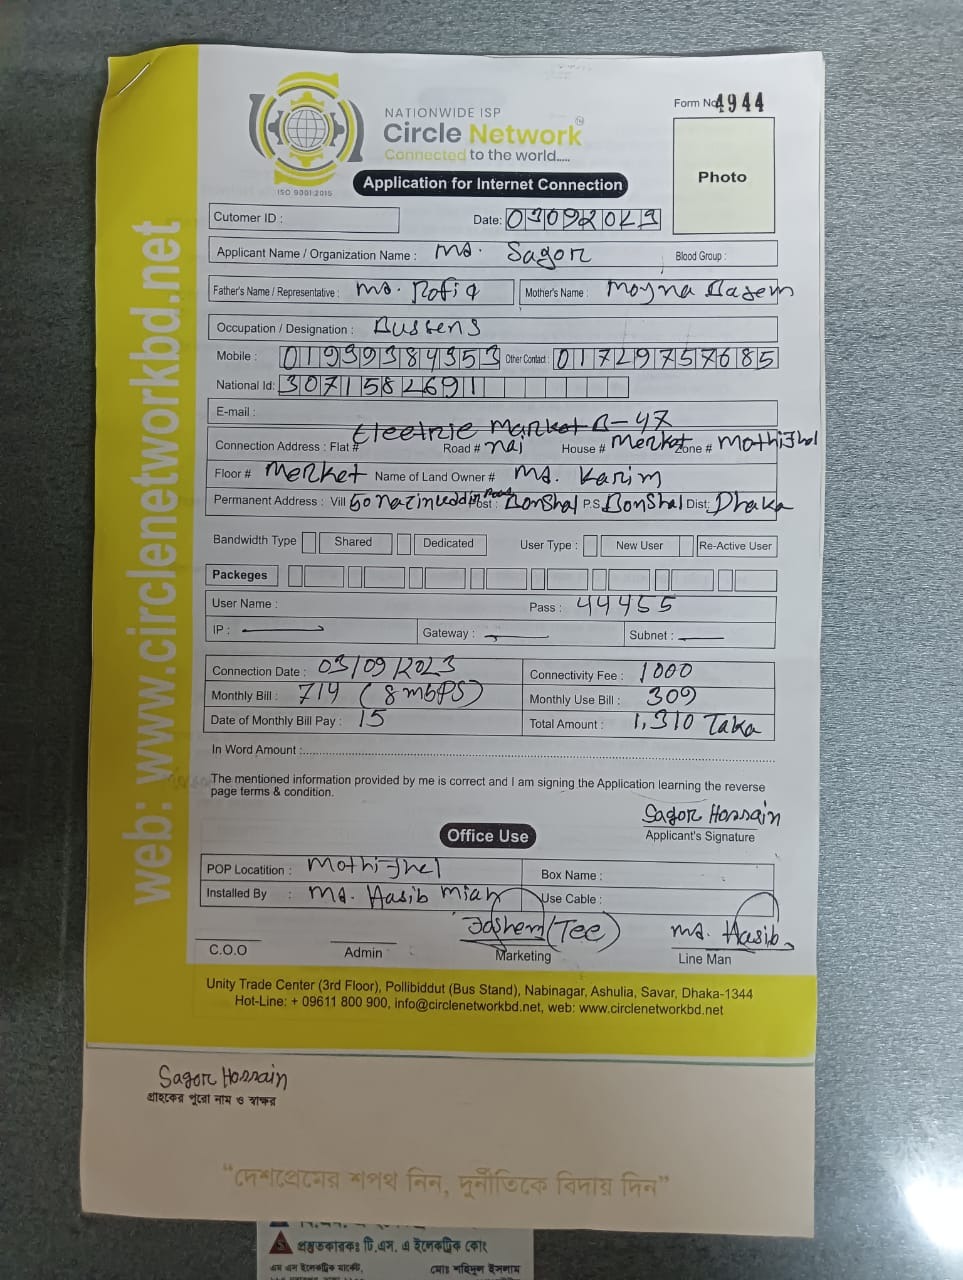 Form No 4944
NATIONWIDE ISP
Circle Network
Connected to the world.....
ISO 9001:2015
Photo
Application for Internet Connection
Cutomer ID :
Date: 03092023
Applicant Name / Organization Name : MD. Sagor
Blood Group :
Father's Name / Representative : MD. Rofiq
Mother's Name : Moyna Bagem
Occupation / Designation : Bussens
Mobile : 01939384353 Other Contact : 01729757685
National Id: 3071582691
E-mail :
Electric Market B-47
Connection Address : Flat # Road # nai House # Merket Zone # Mothijhol
Floor # Merket Name of Land Owner # MD. Karim
Permanent Address : Vill 50 Nazimuddin Road Post : Bonshal P.S Bonshal Dist: Dhaka
Bandwidth Type Shared Dedicated User Type : New User Re-Active User
Packeges
User Name : Pass : 44455
IP : Gateway : Subnet :
Connection Date : 03/09/2023 Connectivity Fee : 1000
Monthly Bill : 714 (8 mbps) Monthly Use Bill : 309
Date of Monthly Bill Pay : 15 Total Amount : 1,310 Taka
In Word Amount :
The mentioned information provided by me is correct and I am signing the Application learning the reverse
page terms & condition.
Sagor Hossain
Applicant's Signature
Office Use
POP Locatition : Mothijhel Box Name :
Installed By : MD. Hasib Miah Use Cable :
(Tee) MD. Hasib
C.O.O Admin Marketing Line Man
Unity Trade Center (3rd Floor), Pollibiddut (Bus Stand), Nabinagar, Ashulia, Savar, Dhaka-1344
Hot-Line: + 09611 800 900, info@circlenetworkbd.net, web: www.circlenetworkbd.net
web: www.circlenetworkbd.net
Sagor Hossain
গ্রাহকের পুরো নাম ও স্বাক্ষর
“দেশপ্রেমের শপথ নিন, দুর্নীতিকে বিদায় দিন”
প্রস্তুতকারকঃ টি.এস. এ ইলেকট্রিক কোং
এম এস ইলেকট্রিক মার্কেট, মোঃ শহিদুল ইসলাম